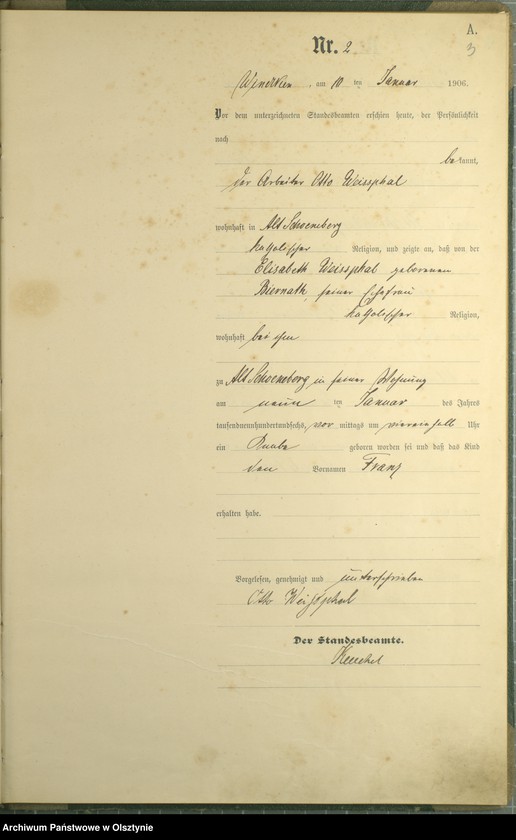 A.
3
Nr. 2
, am 10 ten Januar 1906.
Vor dem unterzeichneten Standesbeamten erschien heute, der Persönlichkeit
nach
be kannt,
der Arbeiter Otto Weissphal
wohnhaft in Alt Schoeneberg
katholischer Religion, und zeigte an, daß von der
Elisabeth Weissphal geborenen
Biernath, seiner Ehefrau
katholischer Religion,
wohnhaft bei ihm
zu Alt Schoeneberg in seiner Wohnung
am neun ten Januar des Jahres
tausendneunhundertundsechs, vor mittags um viereinhalb Uhr
ein Knabe geboren worden sei und daß das Kind
den Vornamen Franz
erhalten habe.
Vorgelesen, genehmigt und unterschrieben
Otto Weißphal
Der Standesbeamte.
Archiwum Państwowe w Olsztynie